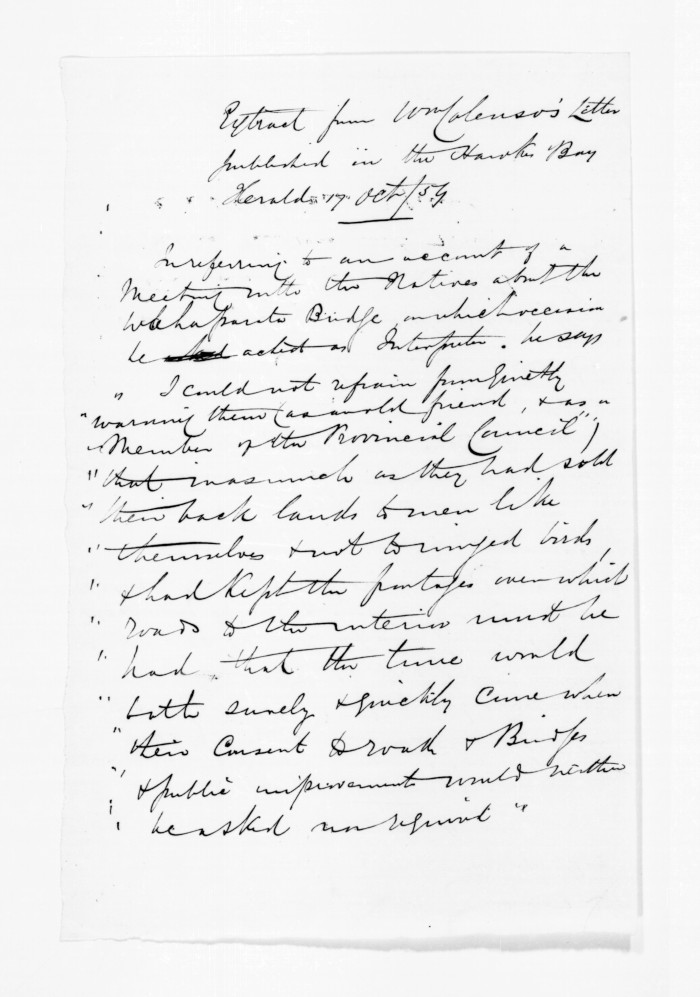 Extract from Wm Colenso's Letter
published in the Hawkes Bay
Herald 17 Oct/59.
In referring to an account of a
Meeting with the Natives about the
Bridge on which occasion
he acted as Interpreter. he says
" I could not refrain from quietly
" warning them (as an old friend, & as a
" Member of the Provincial Council")
" that inasmuch as they had sold
" their back lands to men like
" themselves & not to winged birds,
" & had Kept the frontages over which
" roads to the interior must be
" had, that the time would
" both surely & quickly come when
" their Consent to roads & Bridges
" & public improvements would neither
" be asked nor required "